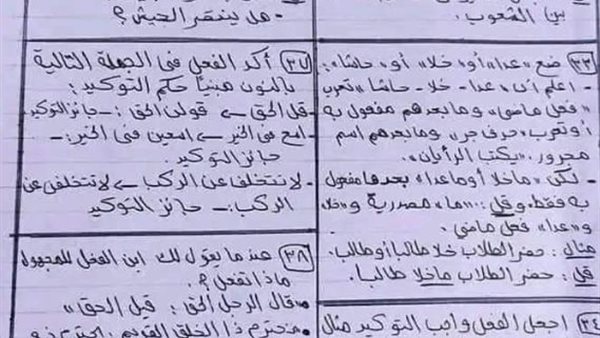 بين الشعوب.
٣٣ ضع "عدا" أو "خلا" أو "حاشا":
- اعلم أن "عدا - خلا - حاشا" تعرب
"فعل ماضي" وما بعدهم مفعول به
أو تعرب "حرف جر" وما بعدهم اسم
مجرور. "يكتب الرأيان".
- لكن "ما خلا أو ما عدا" بعدها مفعول
به فقط، وقل: "ما" مصدرية و "خلا
و "عدا" فعل ماضي.
مثال: حضر الطلاب خلا طالباً أو طالب.
قل: حضر الطلاب ما خلا طالباً.
٣٤ اجعل الفعل واجب التوكيد مثال
- هل ينتصر الجيش؟
٣٧ أكد الفعل في الجملة التالية
بالنون مبيناً حكم التوكيد:
- قل الحق ← قولن الحق :- جائز التوكيد
- اسع في الخير ← اسعين في الخير :-
جائز التوكيد.
- لا تتخلف عن الركب ← لا تتخلفن عن
الركب :- جائز التوكيد
٣٨ عندما يقول لك ابن الفعل للمجهول
ماذا تفعل؟.
• قال الرجل الحق : قيل الحق"
ذا الخلق القويم